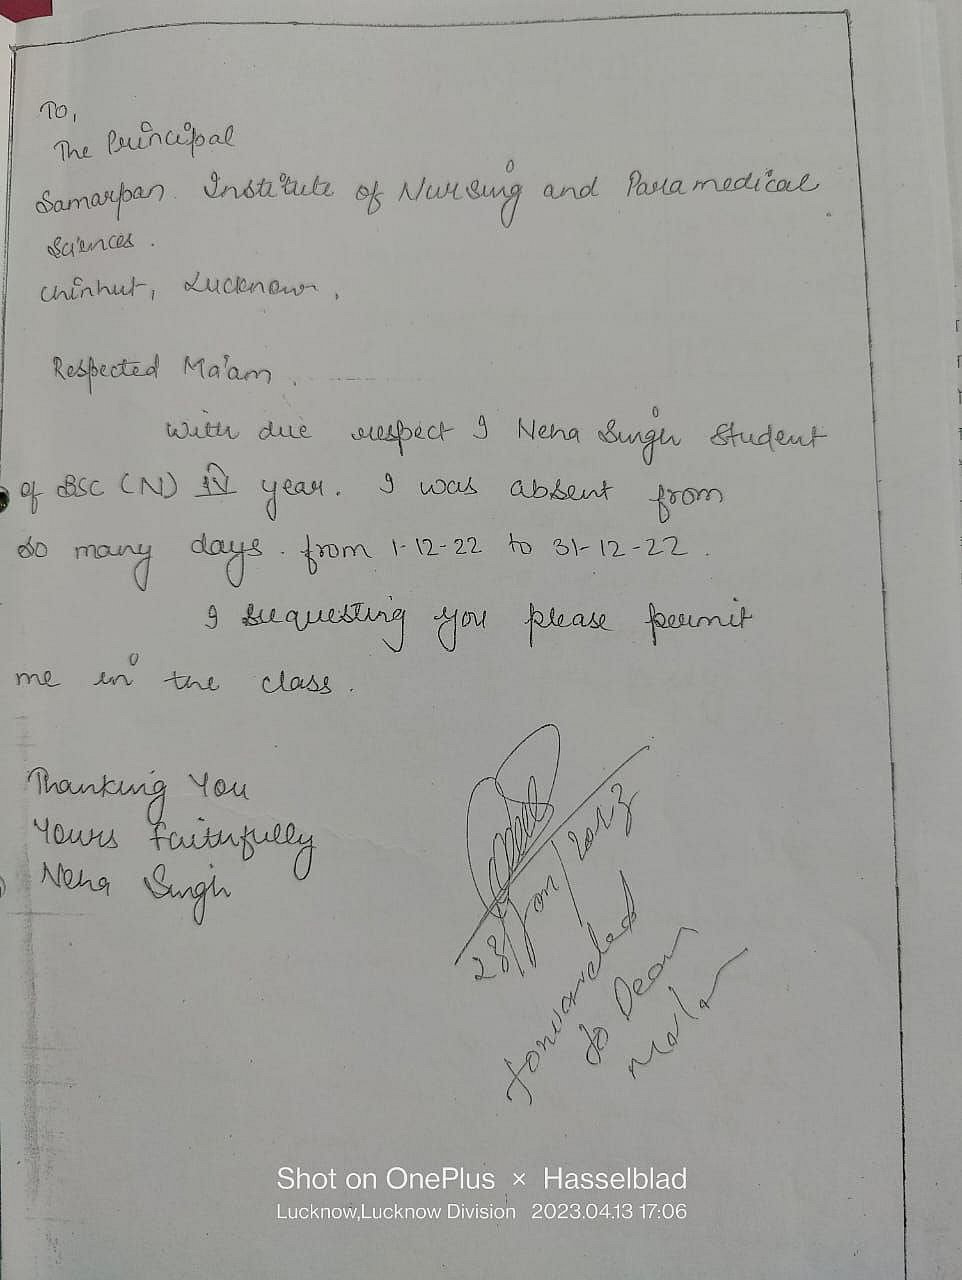 To,
The Principal
Samarpan Institute of Nursing and Paramedical
Sciences.
Chinhut, Lucknow,
Respected Ma'am,
With due respect I Neha Singh Student
of BSC (N) IV year. I was absent from
so many days. from 1-12-22 to 31-12-22.
I requesting you please permit
me in the class.
Thanking You
Yours faithfully
Neha Singh
28/Jan/2023
forwarded
to Dean
Shot on OnePlus × Hasselblad
Lucknow,Lucknow Division 2023.04.13 17:06